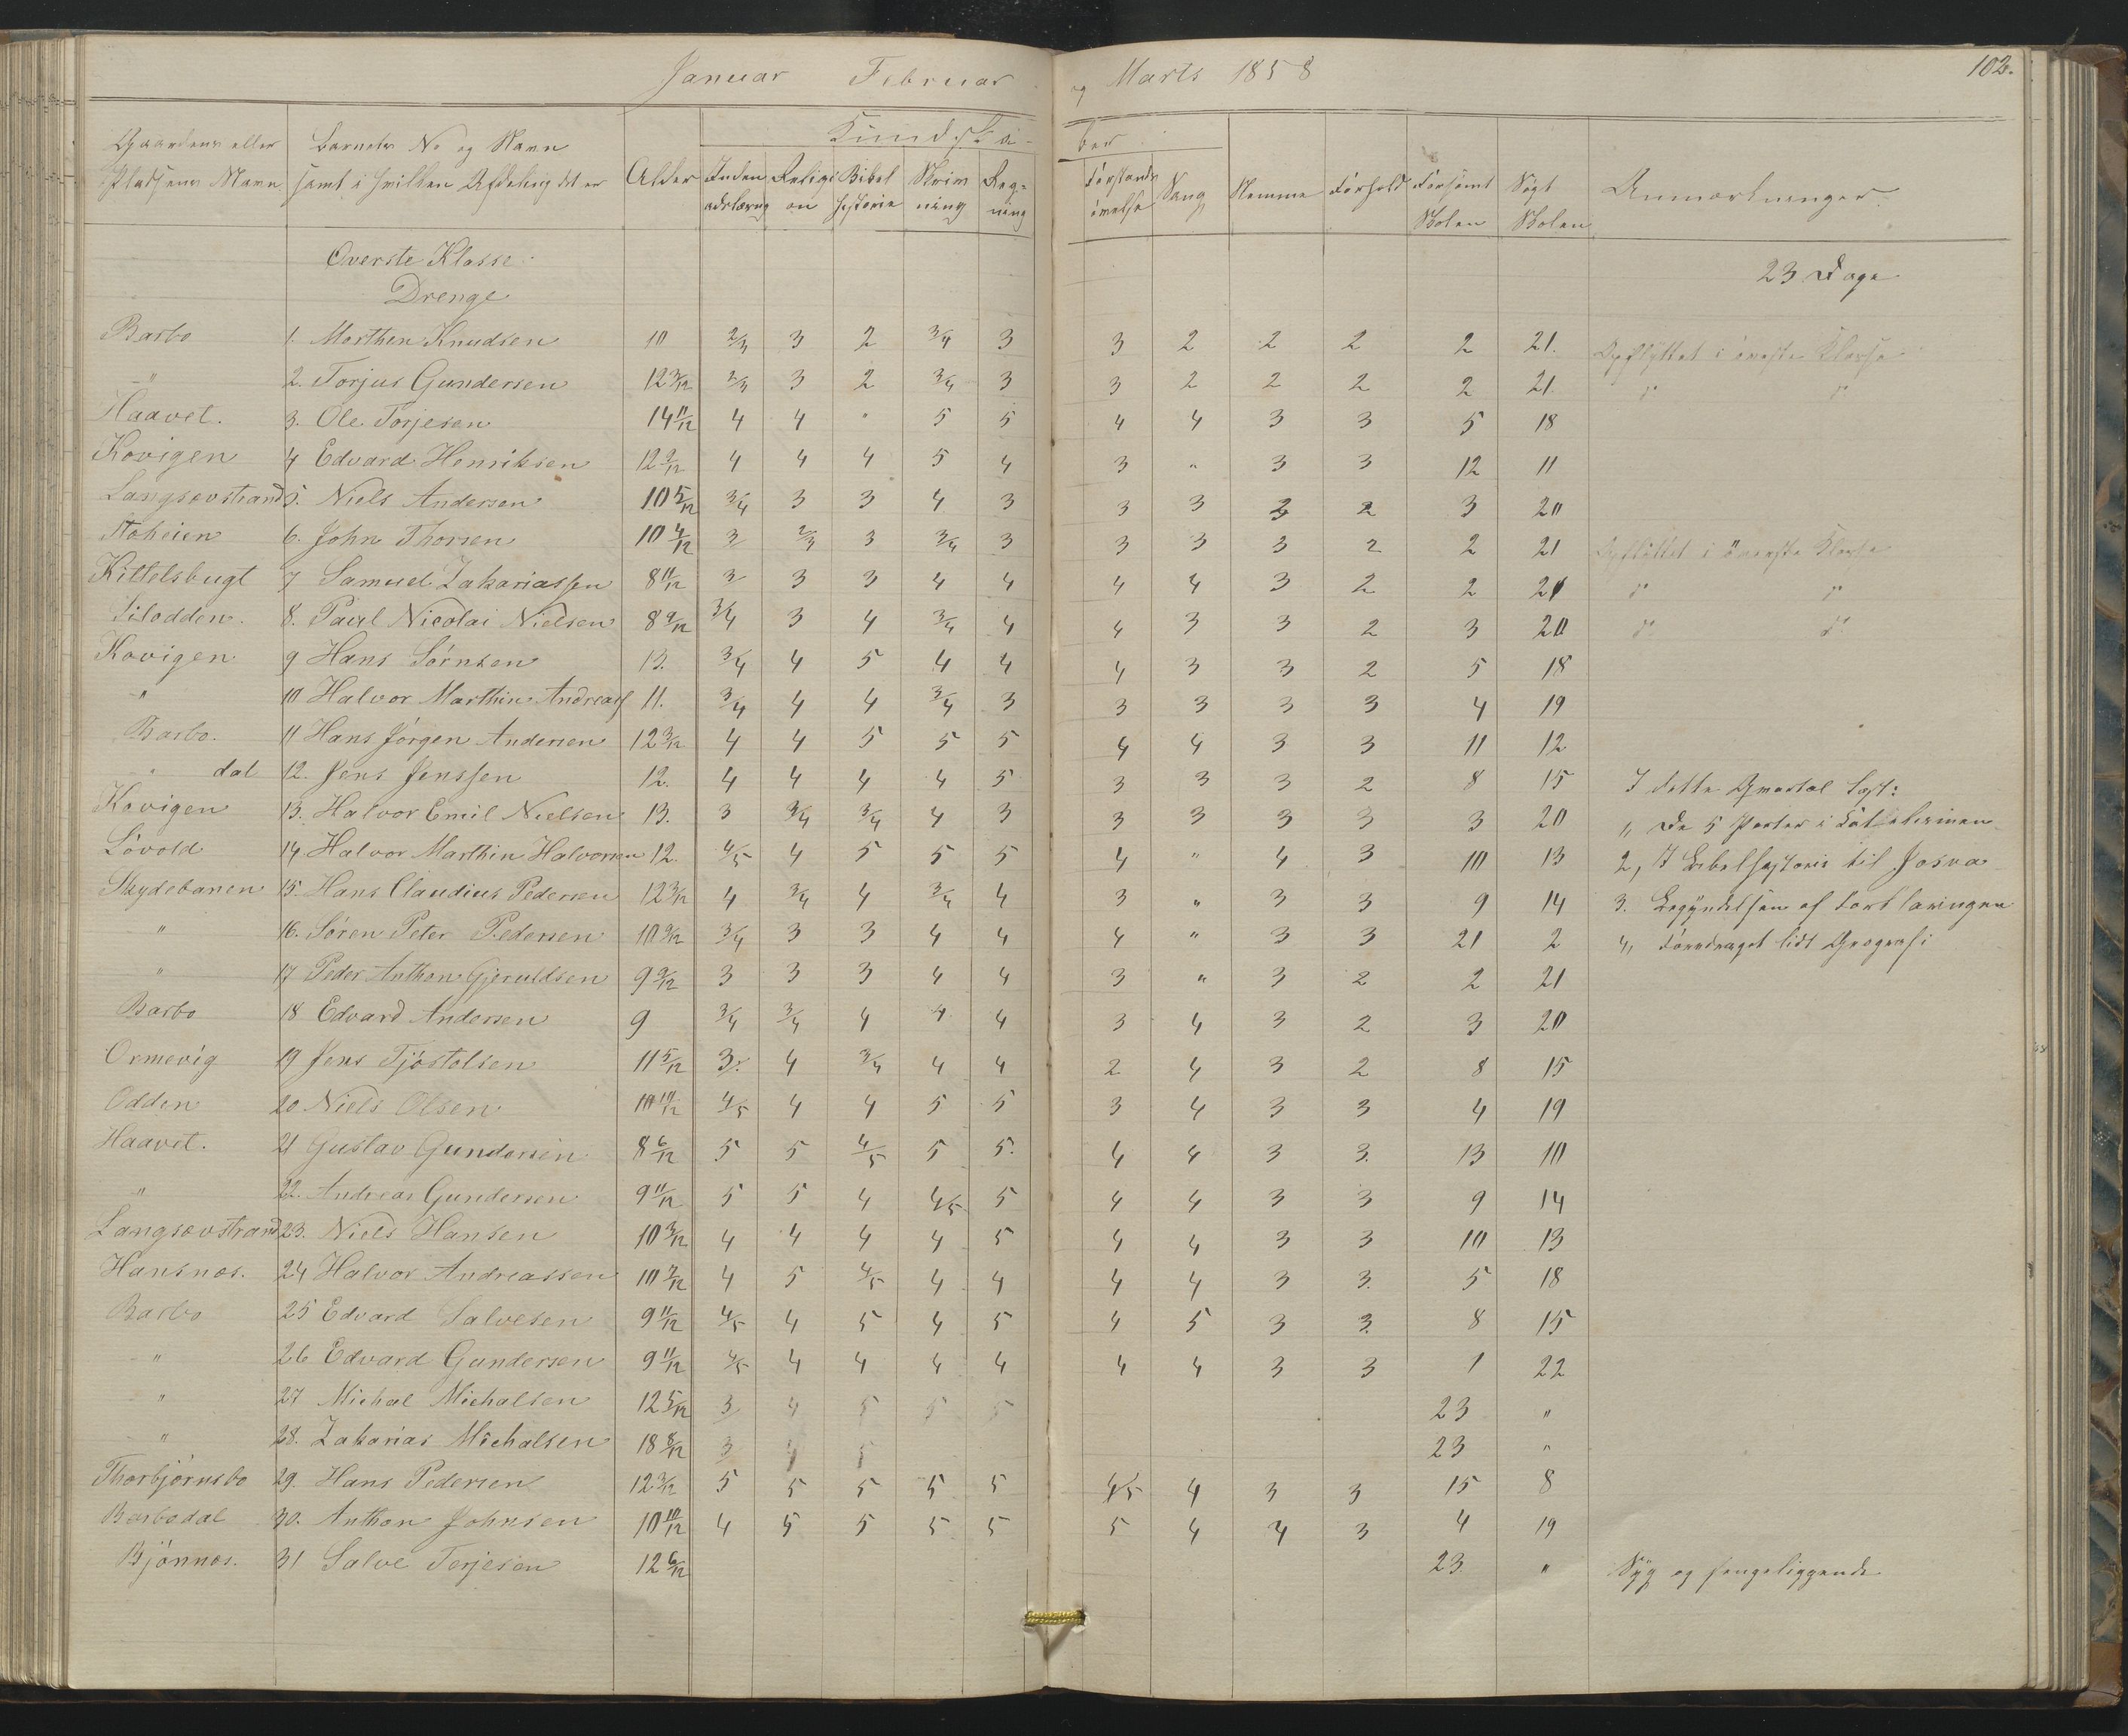 Januar Februar og Marts 1858 102.
Gaardens eller Barnets No og Navn Kundska- ber
Pladsens Navn samt i hvilken Afdeling det er Alder Inden Religi Bibel Skriv Reg= Forstands Sang Nemme Forhold Forsömt Sögt Anmærkninger.
adslæsng on historie ning ning övelse Skolen Skolen
Överste Klasse
23 Dage
Drenge
Barbo 1. Marthen Knudsen 10 2/3 3 2 3/4 3 3 2 2 2 2 21. Opflyttet i överste Klasse
" 2. Torjus Gundersen 12 3/12 2/3 3 2 3/4 3 3 2 2 2 2 21. " "
Haavet. 3. Ole Torjesen 14 11/12 4 4 " 5 5 4 4 3 3 5 18
Kovigen 4 Edvard Henriksen 12 9/12 4 4 4 5 4 3 " 3 3 12 11
Langsævstrand 5. Niels Andersen 10 5/12 3/4 3 3 4 3 3 3 3 2 3 20
Stoheien 6. John Thorsen 10 4/12 3 2/3 3 3/4 3 3 3 3 2 2 21 Opflyttet i överste Klasse
Kittelsbugt 7 Samuel Zakariassen 8 11/12 3 3 3 4 4 4 4 3 2 2 21 " "
Silodden. 8. Paul Nicolai Nielsen 8 9/12 3/4 3 4 3/4 4 4 3 3 2 3 20 " "
Kovigen 9 Hans Sörnsen 13. 3/4 4 5 4 4 4 3 3 2 5 18
" 10 Halvor Marthin Andreass 11. 3/4 4 4 3/4 3 3 3 3 3 4 19
Barbo. 11 Hans Jörgen Andersen 12 3/12 4 4 5 5 5 4 4 3 3 11 12
" dal 12. Jens Jenssen 12. 4 4 4 4 5 3 3 3 2 8 15 I dette Qvartal læst:
Kovigen 13. Halvor Emil Nielsen 13. 3 3/4 3/4 4 3 3 3 3 3 3 20 " De 5 Parter i Katekismen
Lövold 14 Halvor Marthin Halvorsen 12. 4/5 4 5 5 5 4 " 4 3 10 13 2, I Bibelhistorie til Josva
Skydebanen 15 Hans Claudius Pedersen 12 3/12 4 3/4 4 3/4 4 3 " 3 3 9 14 3. Begyndelsen af Forklaringen
" 16. Sören Peter Pedersen 10 9/12 3/4 3 3 4 4 4 " 3 3 21 2 4, Foredraget lidt Geografi
" 17 Peder Anthon Gjeruldsen 9 9/12 3 3 3 4 4 3 " 3 2 2 21
Barbo 18 Edvard Andersen 9 3/4 3/4 4 4 4 3 4 3 2 3 20
Ormevig 19 Jens Tjöstolsen 11 5/12 3. 4 3/4 4 4 2 4 3 2 8 15
Odden 20 Niels Olsen 10 10/12 4/5 4 4 5 5 3 4 3 3 4 19
Haavet. 21 Gustav Gundersen 8 6/12 5 5 4/5 5 5. 4 4 3 3. 13 10
" 22. Andreas Gundersen 9 11/12 5 5 4 4/5 5 4 4 3 3 9 14
Langsævstrand 23. Niels Hansen 10 3/12 4 4 4 4 5 4 4 3 3 10 13
Hansnæs. 24 Halvor Andreassen 10 7/12 4 5 4/5 4 4 4 4 3 3. 5 18
Barbo 25 Edvard Salvesen 9 11/12 4/5 4 5 4 5 4 5 3 3. 8 15
" 26 Edvard Gundersen 9 11/12 4/5 4 4 4 4 4 4 3 3 1 22
" 27 Michal Michalsen 12 5/12 3 4 5 5 5 23 "
" 28. Zakarias Michalsen 18 8/12 3 4 5 23 "
Thorbjörnsbo 29. Hans Pedersen 12 3/12 5 5 5 5 5 4/5 4 3 3 15 8
Barbodal 30. Anthon Johnsen 10 10/12 4 5 5 5 5 5 4 4 3 4 19
Bjönnæs. 31 Salve Terjesen 12 6/12 23. " Syg og sengeliggende